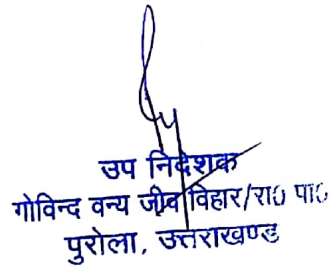 उप निदेशक
गोविन्द वन्य जीव विहार/रा० पा०
पुरोला, उत्तराखण्ड